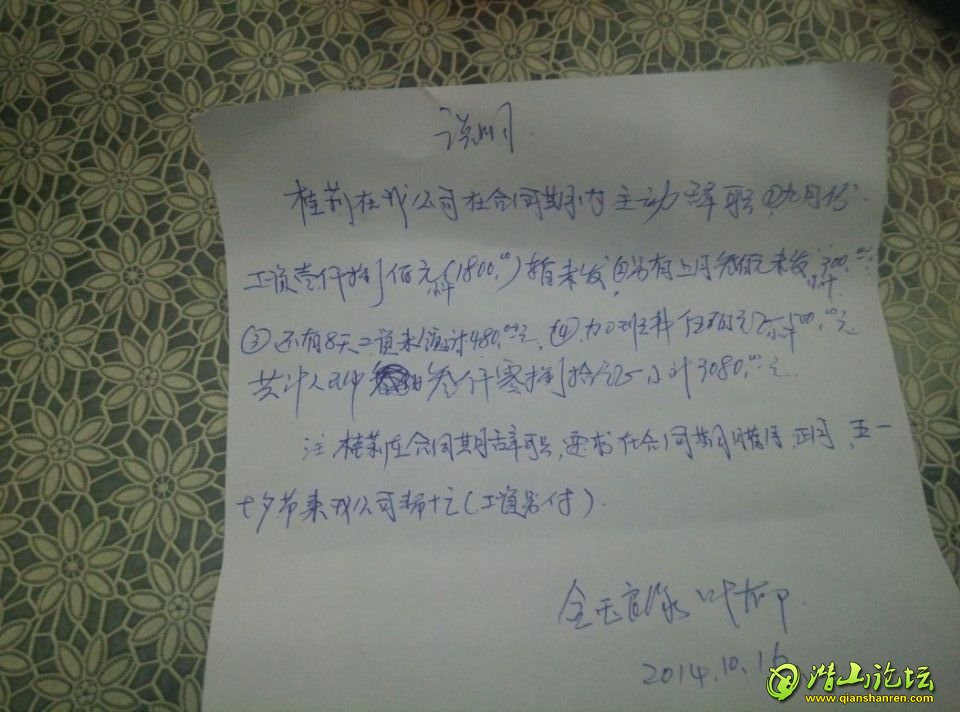 说明
桂莉在我公司在合同期内主动辞职①九月份
工资壹仟捌佰元(1800.00)暂未发,②另有上月叁佰元未发,300.00
③还有8天工资未算计480.00元、④加班料伍佰元 500.00元
共计人民币叁仟零捌拾元 小计3080.00元
注:桂莉在合同期辞职,要求在合同期腊月、正月、五一
七夕节来我公司帮忙(工资另付).
金玉良缘 叶柳
2014.10.16
潜山论坛
www.qianshanren.com